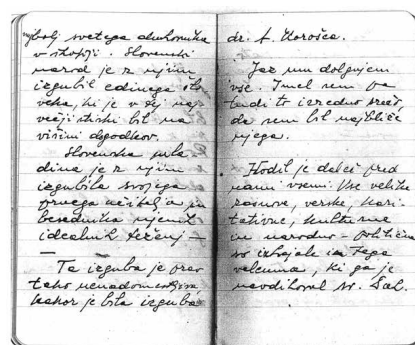 najbolj svetega duhovnika
v škofiji. Slovenski
narod je z njim
izgubil edinega člo
veka, ki je v tej naj
višini dogodkov.
Slovenska mla
dina je z njim
izgubila svojega
prvega učitelja in
besednika njenih
idealnih teženj —
—
Ta izguba je prav
tako nenadomestljiva
kakor je bila izguba
dr. A. Korošca.
Jaz mu dolgujem
vse. Imel sem pa
tudi to izredno srečo,
da sem bil najbliže
njega.
Hodil je daleč pred
nami vsemi. Vse velike
zasnove, verske, kari
tativne, kulturne
in narodno-politične
so izhajale iz tega
veleuma, ki ga je
navdihoval sv. Duh.